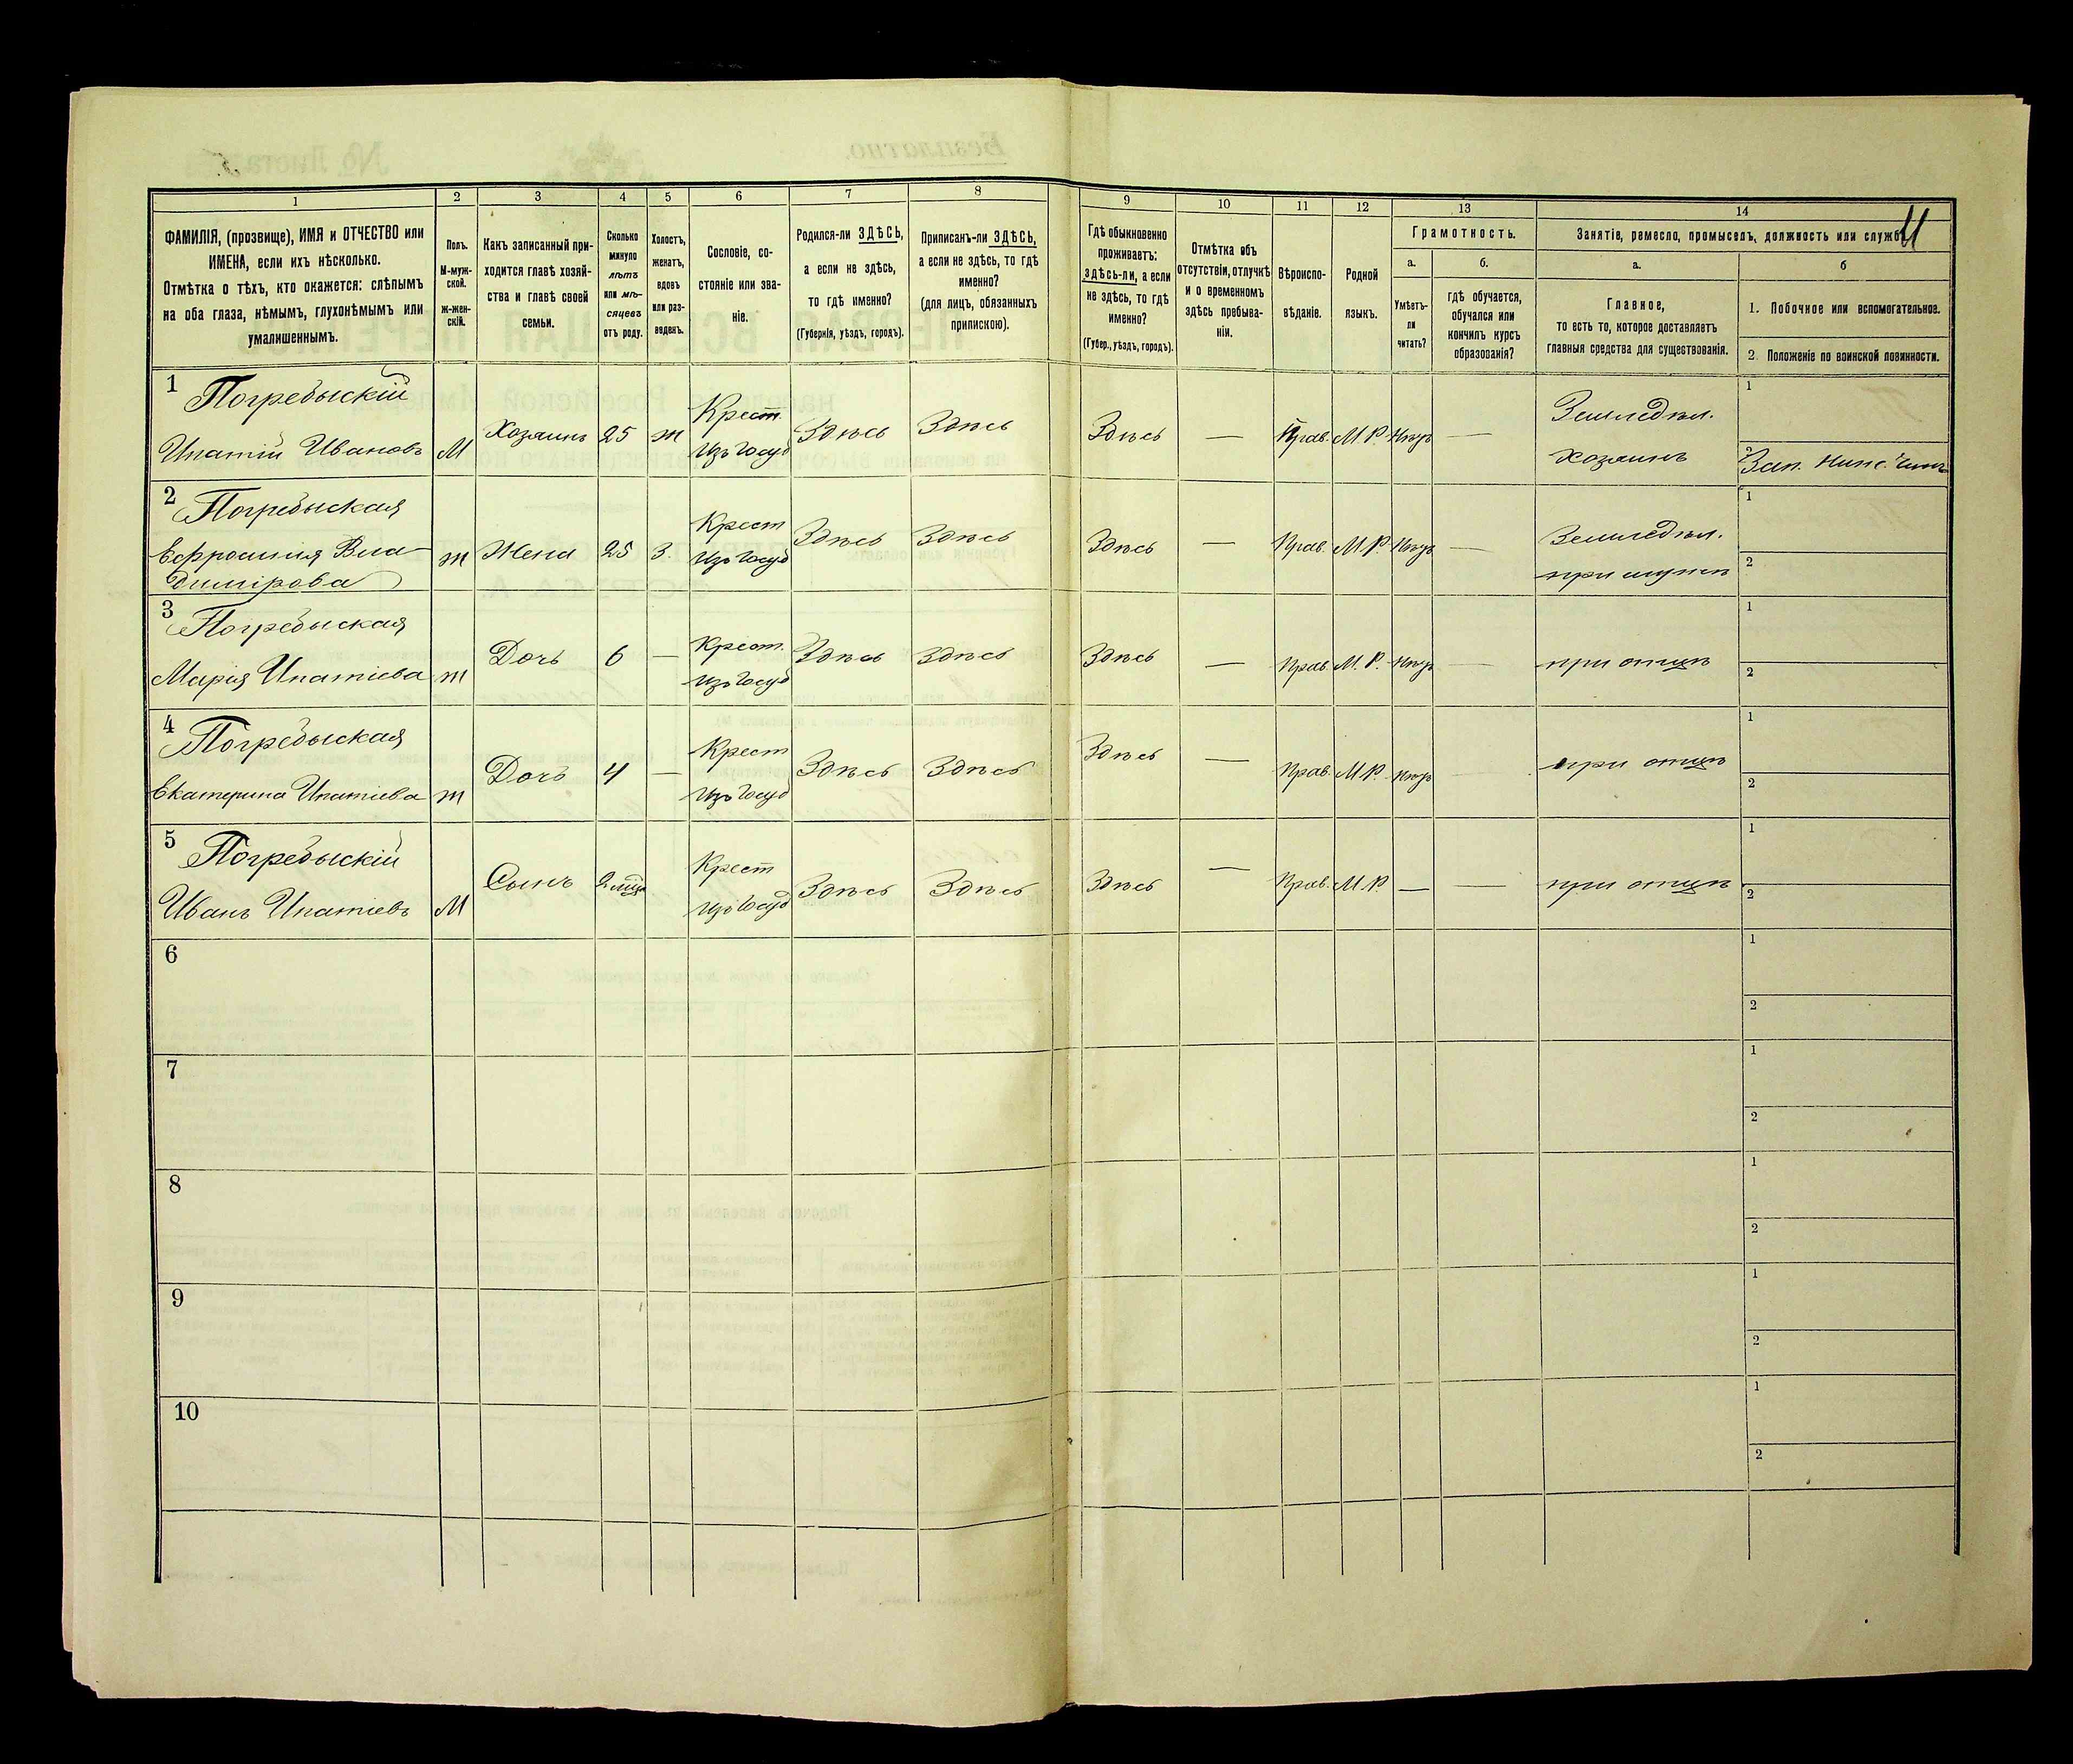 1 2 3 4 5 6 7 8 9 10 11 12 13 14
11
ФАМИЛІЯ, (прозвище), ИМЯ и ОТЧЕСТВО или
ИМЕНА, если ихъ нѣсколько.
Отмѣтка о тѣхъ, кто окажется: слѣпымъ
на оба глаза, нѣмымъ, глухонѣмымъ или
умалишеннымъ.
Полъ.
М-муж-
ской.
ж-жен-
скій.
Какъ записанный при-
ходится главѣ хозяй-
ства и главѣ своей
семьи.
Сколько
минуло
лѣтъ
или мѣ-
сяцевъ
отъ роду.
Холостъ,
женатъ,
вдовъ
или раз-
веденъ.
Сословіе, со-
стояніе или зва-
ніе.
Родился-ли ЗДѢСЬ,
а если не здѣсь,
то гдѣ именно?
(Губернія, уѣздъ, городъ).
Приписанъ-ли ЗДѢСЬ,
а если не здѣсь, то гдѣ
именно?
(для лицъ, обязанныхъ
припискою).
Гдѣ обыкновенно
проживаетъ:
здѣсь-ли, а если
не здѣсь, то гдѣ
именно?
(Губер., уѣздъ, городъ).
Отмѣтка объ
отсутствіи, отлучкѣ
и о временномъ
здѣсь пребыва-
ніи.
Вѣроиспо-
вѣданіе.
Родной
языкъ.
Грамотность.
а.
Умѣетъ-
ли
читать?
б.
гдѣ обучается,
обучался или
кончилъ курсъ
образованія?
Занятіе, ремесло, промыселъ, должность или служба
а.
Главное,
то есть то, которое доставляетъ
главныя средства для существованія.
б
1. Побочное или вспомогательное.
2. Положеніе по воинской повинности.
1 Погребыскій
Ипатій Ивановъ М Хозяинъ 25 ж Крест.
изъ госуд Здѣсь Здѣсь Здѣсь — Прав. М.Р. Нѣтъ — Земледѣл.
хозяинъ 1
2 Зап. Нижн. Чинъ
2 Погребыская
Ефросинія Вла-
димірова ж Жена 25 З. Крест
изъ госуд Здѣсь Здѣсь Здѣсь — Прав. М.Р. Нѣтъ — Земледѣл.
при мужѣ 1
2
3 Погребыская
Марія Ипатіева ж Дочь 6 — Крест.
изъ госуд Здѣсь Здѣсь Здѣсь — Прав. М.Р. Нѣтъ — при отцѣ 1
2
4 Погребыская
Екатерина Ипатіева ж Дочь 4 — Крест
изъ госуд Здѣсь Здѣсь Здѣсь — Прав. М.Р. Нѣтъ — при отцѣ 1
2
5 Погребыскій
Иванъ Ипатіевъ М Сынъ 2 Крест
изъ госуд Здѣсь Здѣсь Здѣсь — Прав. М.Р. — — при отцѣ 1
2
6 1
2
7 1
2
8 1
2
9 1
2
10 1
2